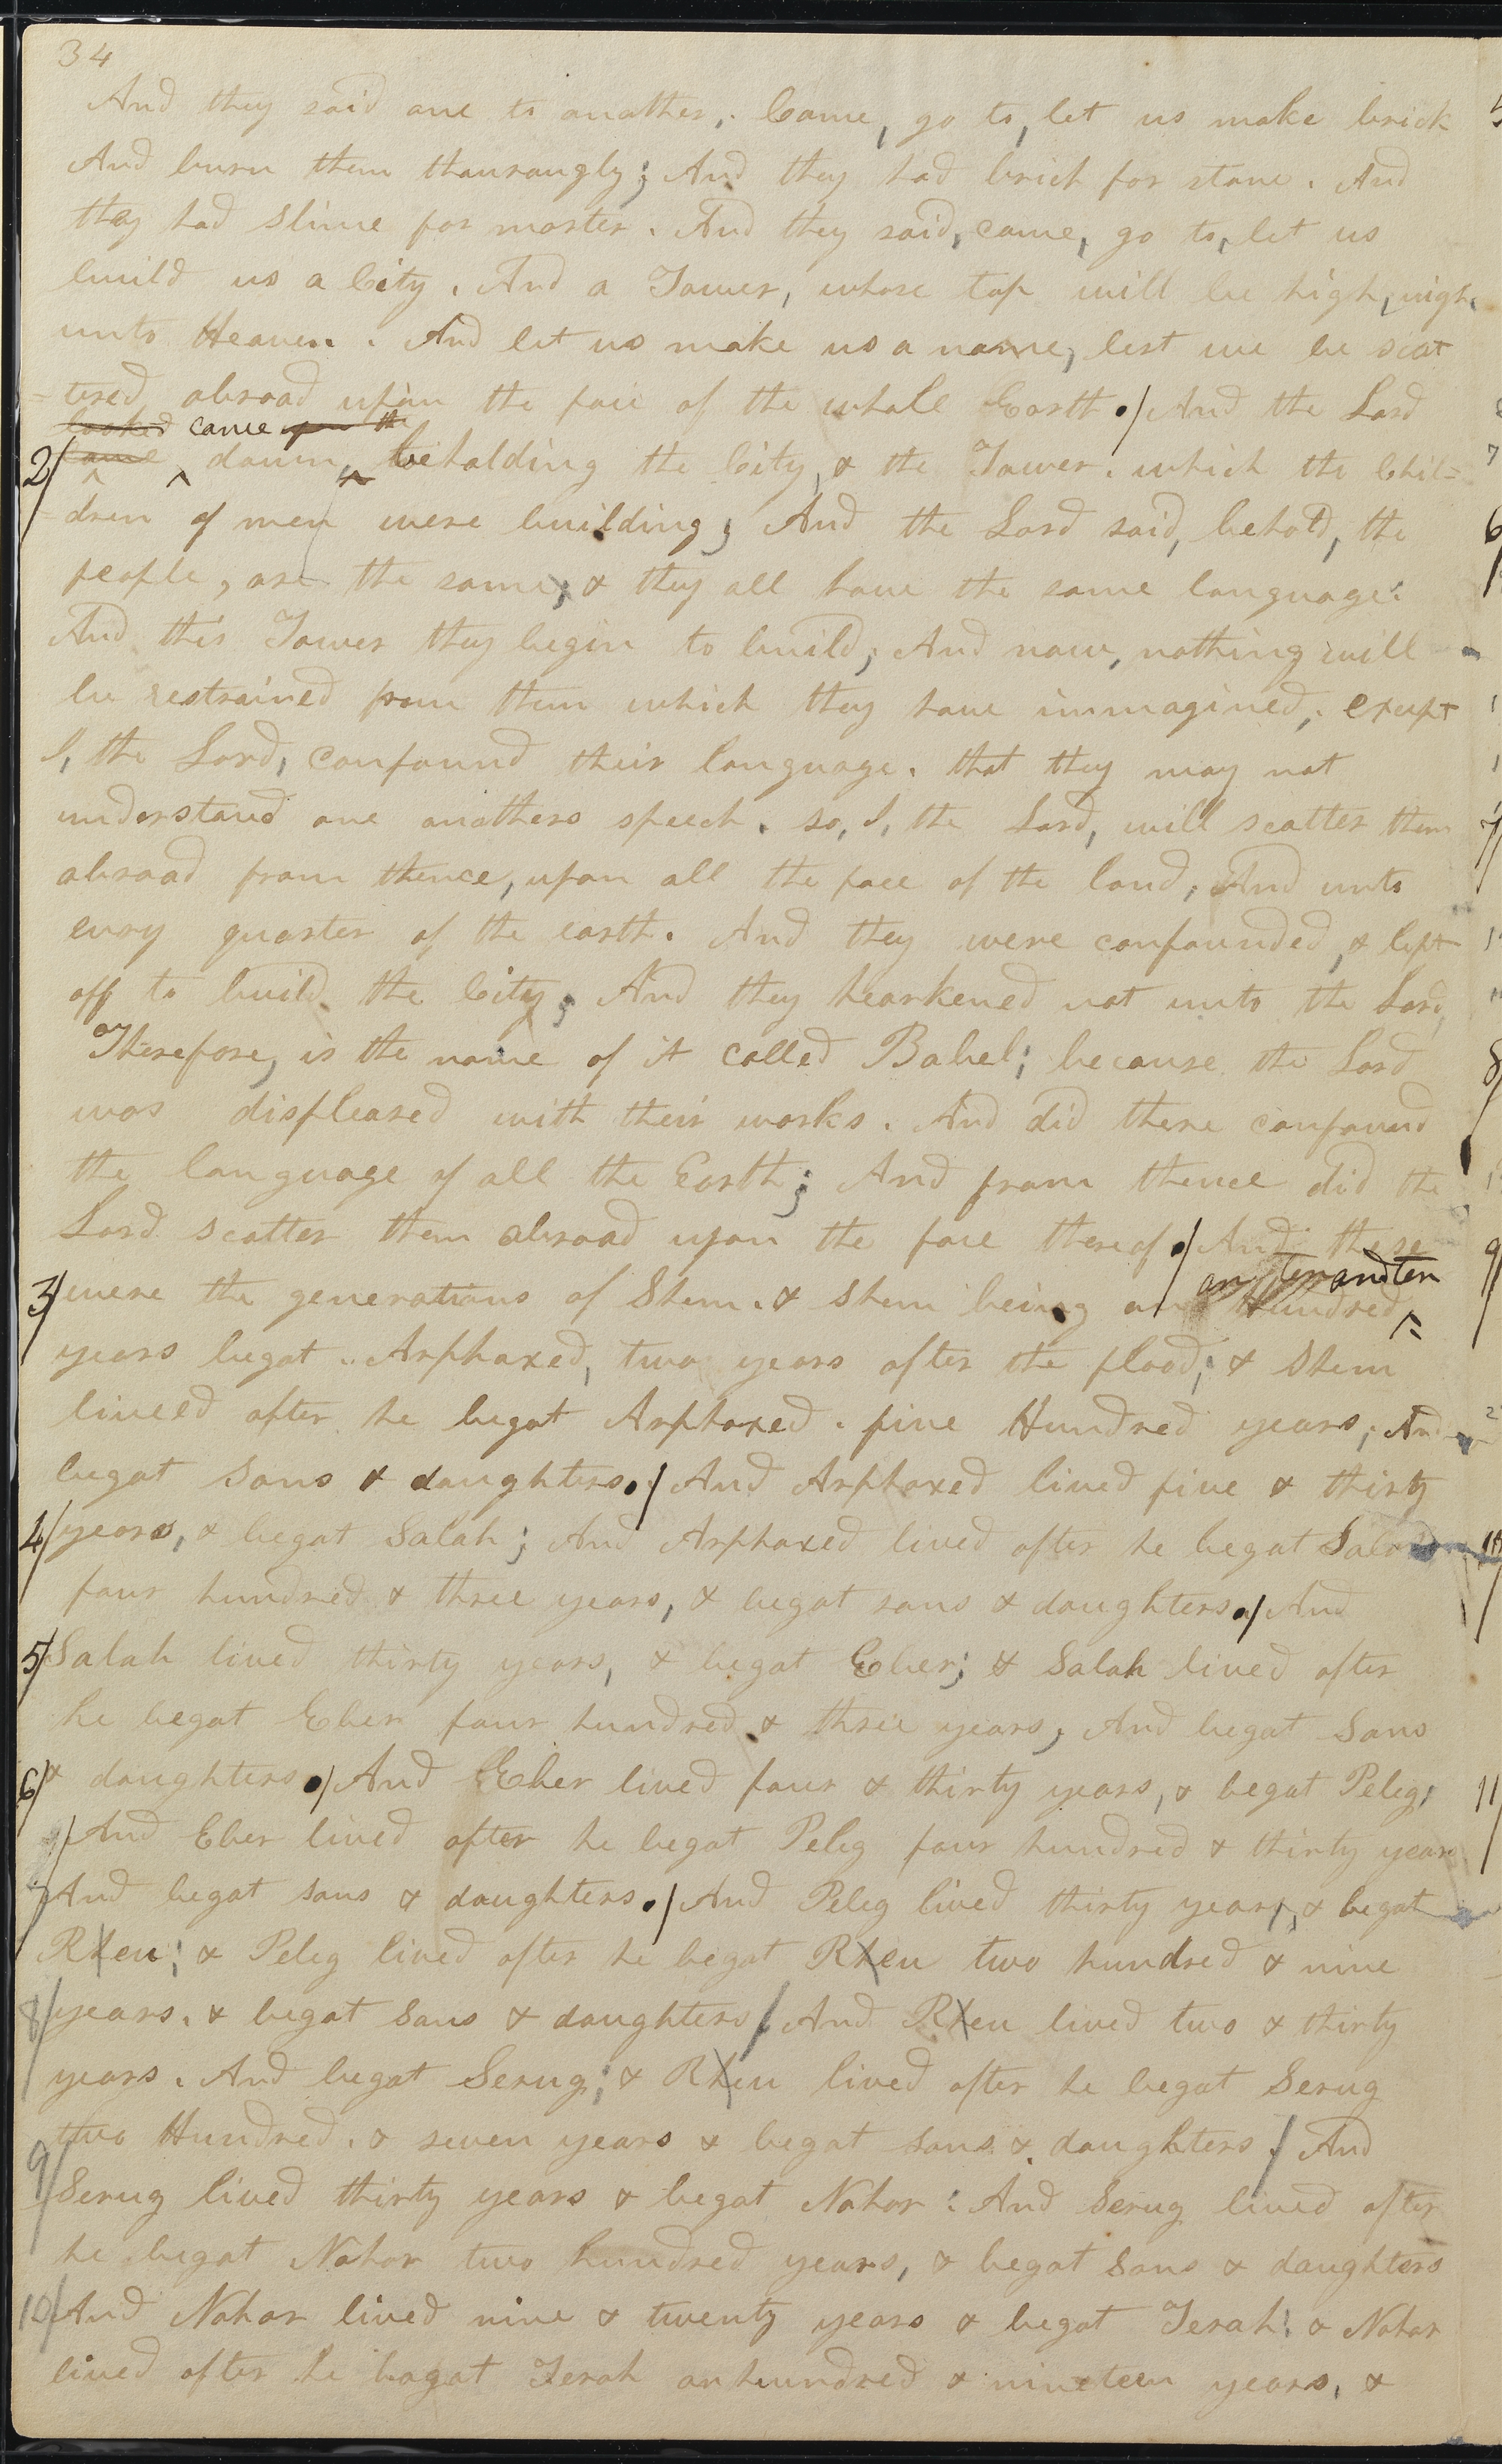 34
And they said one to another, Come, go to, let us make brick
And burn them thourougly; And they had brick for stone. And
they had slime for morter. And they said, come, go to, let us
build us a City. And a Tower, whose top will be high, nigh
unto Heaven. And let us make us a name, lest we be scat
=tered abroad upon the face of the whole Earth./ And the Lord
looked came upon the
2/ came ^ down, beholding the City, & the Tower. which the Chil=
=dren of men were building; And the Lord said, behold, the
people, are the same; & they all have the same language:
And this Tower they begin to build; And now, nothing will
be restrained from them which they have immagined, except
I, the Lord, confound their language. that they may not
understand one anothers speech. so, I, the Lord, will scatter them
abroad from thence, upon all the face of the land, And unto
evry quarter of the earth. And they were confounded, & left
off to build the City; And they hearkened not unto the Lord,
Therefore, is the name of it called Babel; because the Lord
was displeased with their works. And did there confound
the language of all the Earth; And from thence did the
Lord scatter them abroad upon the face thereof./ And these
and ten
3/ were the generations of Shem. & Shem being an Hundred
years begat Arphaxed, two years after the flood; & Shem
liveed after he begat Arphaxed. five Hundred years, And
begat Sons & daughters./ And Arphaxed lived five & thirty
4/ years, & begat Salah; And Arphaxed lived after he begat Salah
four hundred & three years, & begat sons & daughters./ And
5/ Salah lived thirty years, & begat Eber; & Salah lived after
he begat Eber four hundred & three years, And begat Sons
6/ & daughters./ And Eber lived four & thirty years, & begat Peleg,
And Eber lived after he begat Peleg four hundred & thirty years
7/ And begat sons & daughters./ And Peleg lived thirty years, & begat
Rheu; & Peleg lived after he begat Rheu two hundred & nine
8/ years. & begat Sons & daughters/ And Rheu lived two & thirty
years. And begat Serug; & Rheu lived after he begat Serug
two Hundred. & seven years & begat sons & daughters./ And
9/ Serug lived thirty years & begat Nahor: And Serug lived after
he begat Nahor two hundred years, & begat Sons & daughters
10/ And Nahor lived nine & twenty years & begat Terah: & Nahor
lived after he bagat Terah an hundred & nineteen years, &